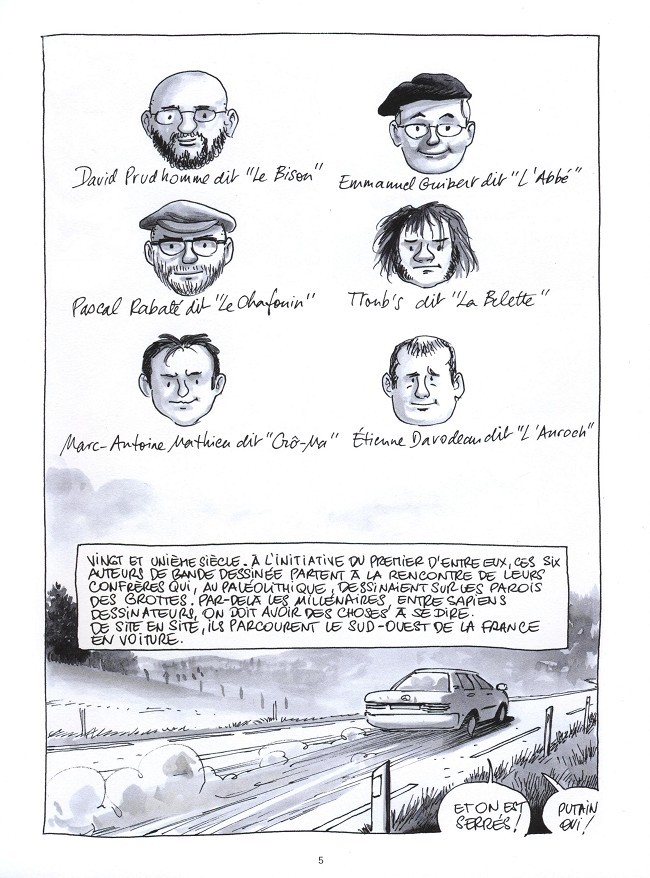 David Prudhomme dit "Le Bison"
Emmanuel Guibert dit "L'Abbé"
Pascal Rabaté dit "Le Chafouin"
Troub's dit "La Belette"
Marc-Antoine Mathieu dit "Crô-Ma"
Étienne Davodeau dit "L'Auroch"
VINGT ET UNIÈME SIÈCLE. À L'INITIATIVE DU PREMIER D'ENTRE EUX, CES SIX
AUTEURS DE BANDE DESSINÉE PARTENT À LA RENCONTRE DE LEURS
CONFRÈRES QUI, AU PALÉOLITHIQUE, DESSINAIENT SUR LES PAROIS
DES GROTTES. PAR-DELÀ LES MILLÉNAIRES, ENTRE SAPIENS
DESSINATEURS, ON DOIT AVOIR DES CHOSES À SE DIRE.
DE SITE EN SITE, ILS PARCOURENT LE SUD-OUEST DE LA FRANCE
EN VOITURE.
ET ON EST
SERRÉS !
PUTAIN
OUI !
5